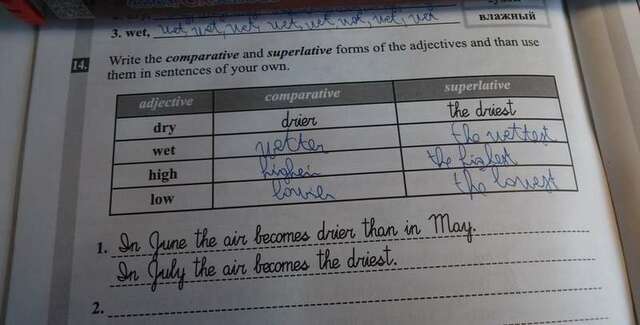 3. wet, wet, wet, wet, wet, wet wet, wet, wet
влажный
14. Write the comparative and superlative forms of the adjectives and than use
them in sentences of your own.
adjective comparative superlative
dry drier the driest
wet wetter the wettest
high higher the highest
low lower the lowest
1. In June the air becomes drier than in May.
In July the air becomes the driest.
2.